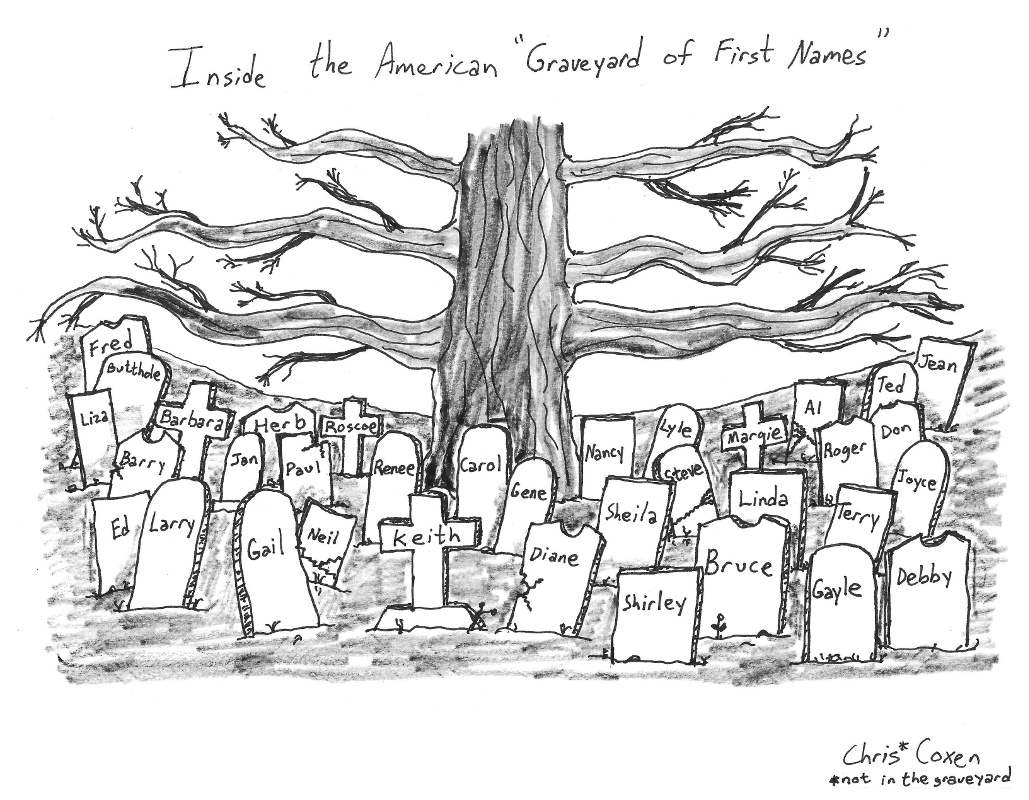 Inside the American "Graveyard of First Names"
Fred
Butthole
Liza
Barbara
Herb
Roscoe
Barry
Jan
Paul
Renee
Carol
Gene
Ed
Larry
Gail
Neil
Keith
Diane
Nancy
Lyle
Steve
Margie
Al
Ted
Jean
Don
Roger
Joyce
Sheila
Linda
Terry
Bruce
Shirley
Gayle
Debby
Chris* Coxen
*not in the graveyard